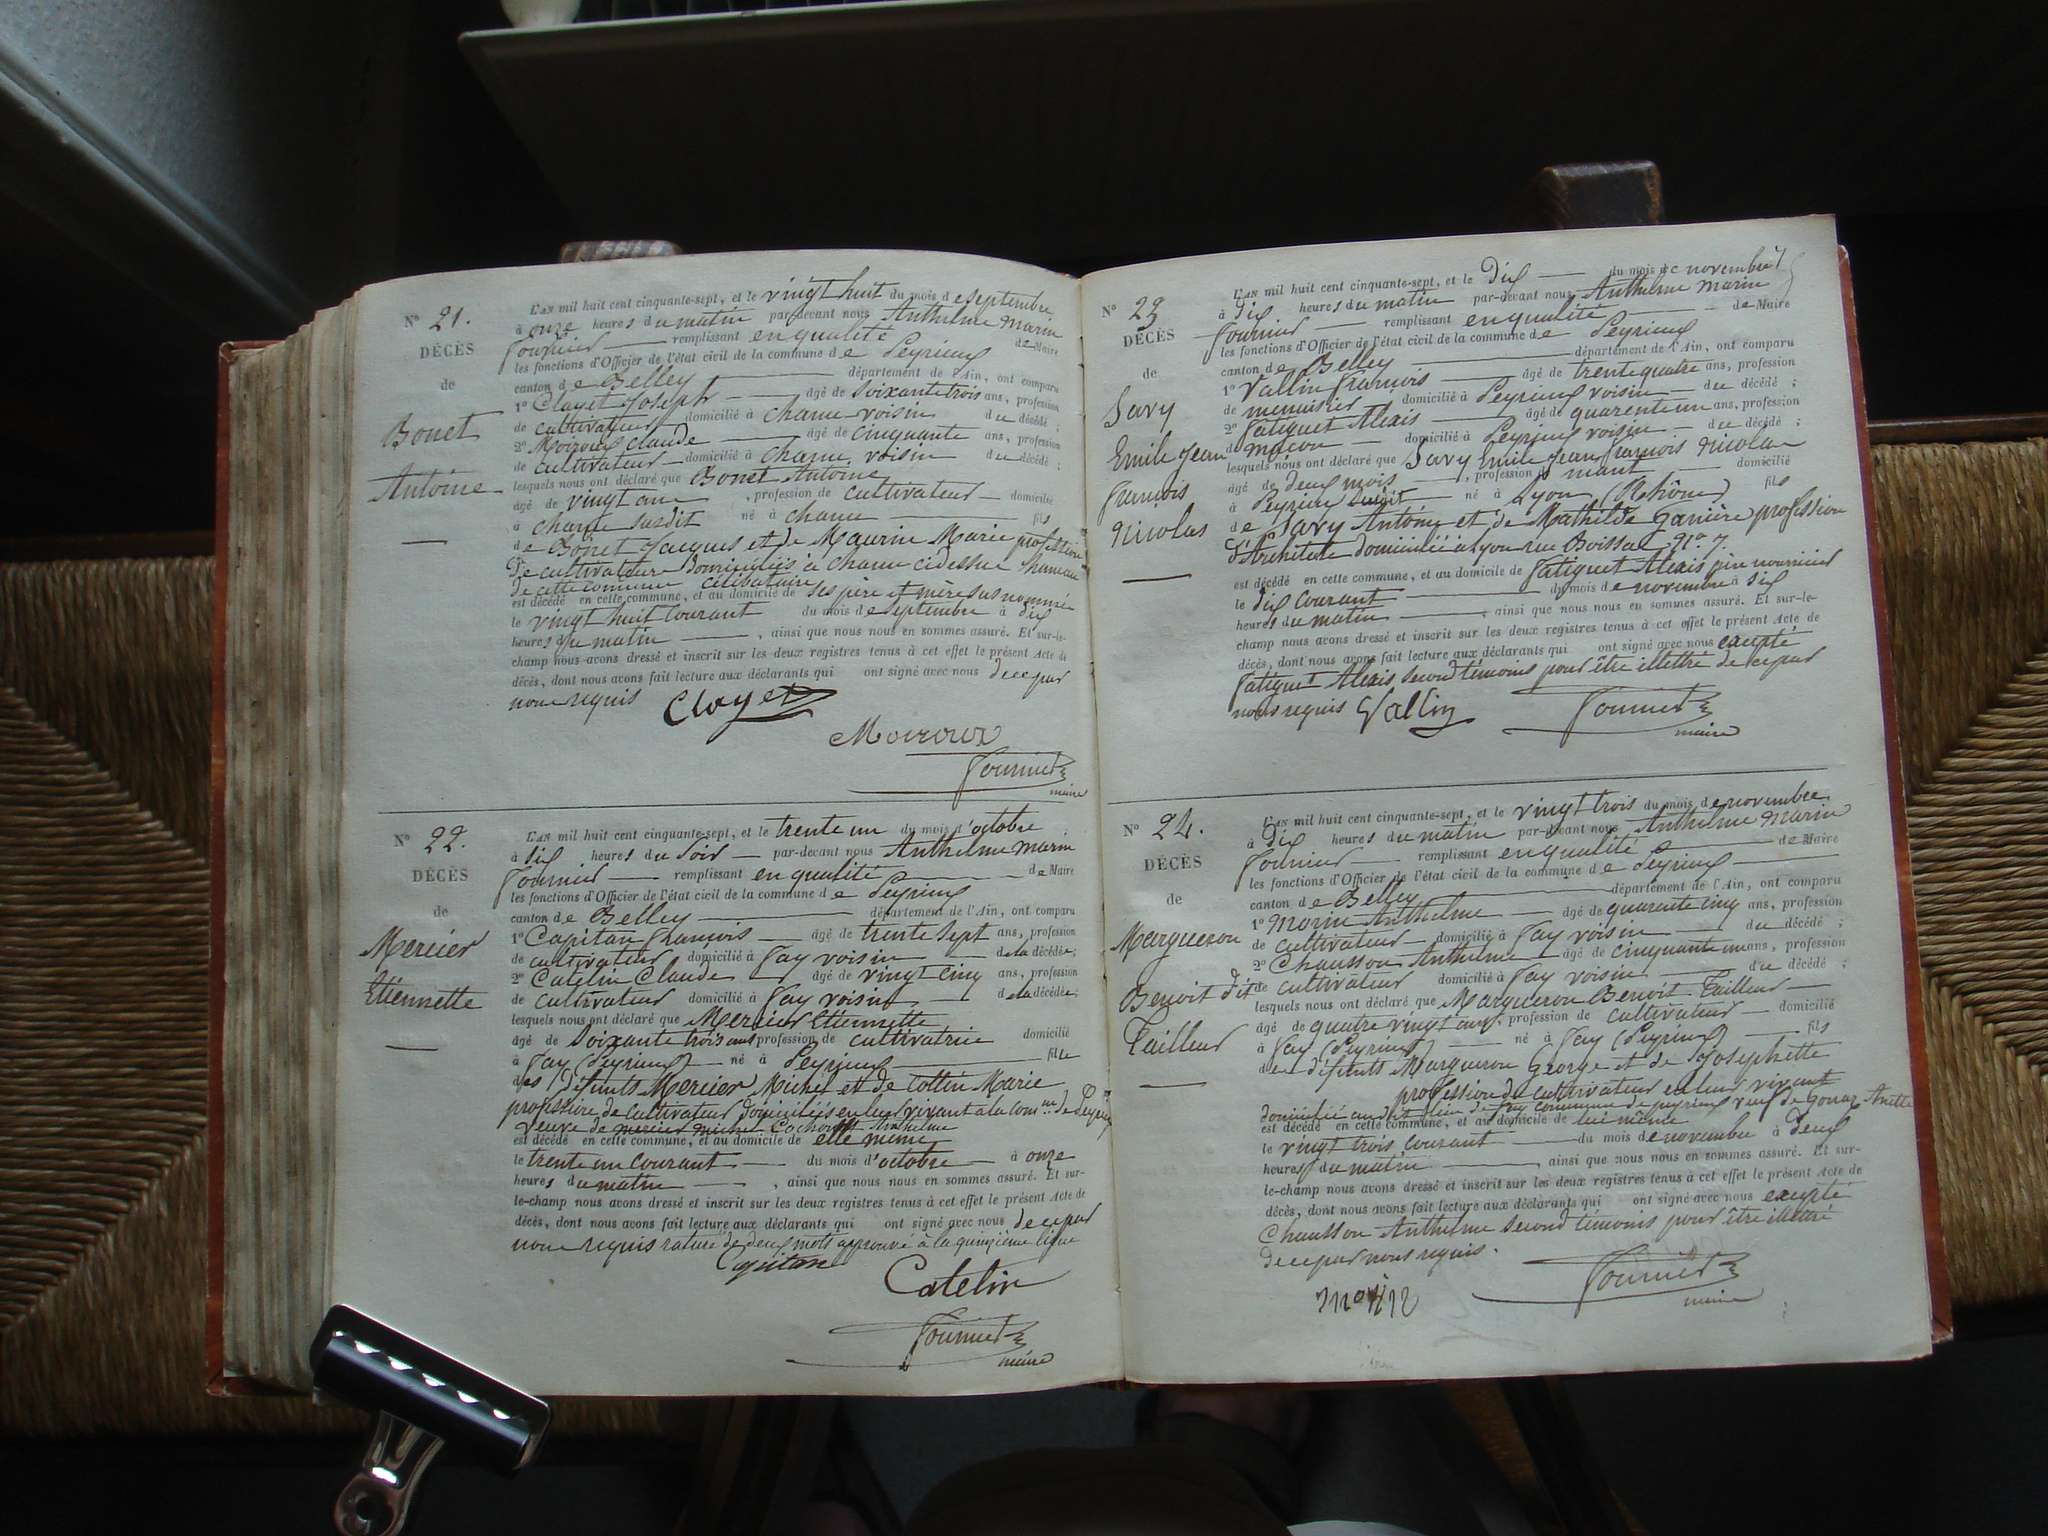 N° 21.
DÉCÈS
de
Bonet
Antoine
L'AN mil huit cent cinquante-sept, et le vingt huit du mois de septembre,
à onze heures du matin par-devant nous Anthelme Marin
Fournier remplissant en qualité de Maire
les fonctions d'Officier de l'état civil de la commune de Peyrieux
canton de Belley département de l'Ain, ont comparu
1° Clayet Joseph âgé de soixante trois ans, profession
de cultivateur domicilié à Charme voisin du décédé;
2° Moiroux Claude âgé de cinquante ans, profession
de cultivateur domicilié à Charme voisin du décédé;
lesquels nous ont déclaré que Bonet Antoine
âgé de vingt ans, profession de cultivateur domicilié
à Charme susdit né à Charme fils
de Bonet Jacques et de Maurin Marie profession
de cultivateurs Domiciliés à Charme cidessus hameau
de cette commune célibataire
est décédé en cette commune, et au domicile de ses père et mère susnommés
le vingt huit courant du mois de septembre à dix
heures du matin, ainsi que nous nous en sommes assuré. Et sur-le-
champ nous avons dressé et inscrit sur les deux registres tenus à cet effet le présent Acte de
décès, dont nous avons fait lecture aux déclarants qui ont signé avec nous de ce par
nous requis Clayet
Moiroux
Fournier
maire
N° 22.
DÉCÈS
de
Mercier
Etiennette
L'AN mil huit cent cinquante-sept, et le trente un du mois d'octobre,
à six heures du soir par-devant nous Anthelme Marin
Fournier remplissant en qualité de Maire
les fonctions d'Officier de l'état civil de la commune de Peyrieux
canton de Belley département de l'Ain, ont comparu
1° Capitan François âgé de trente sept ans, profession
de cultivateur domicilié à Fay voisin de la décédée;
2° Catelin Claude âgé de vingt cinq ans, profession
de cultivateur domicilié à Fay voisin de la décédée;
lesquels nous ont déclaré que Mercier Etiennette
âgé de soixante trois ans profession de cultivatrice domicilié
à Fay (Peyrieux) né à Peyrieux fille
des défunts Mercier Michel et de Cottin Marie
profession de cultivateur domiciliés en leur vivant à la comne de Peyrieux
veuve de mercier michel Cochonat Anthelme
est décédé en cette commune, et au domicile de elle même
le trente un courant du mois d'octobre à onze
heures du matin, ainsi que nous nous en sommes assuré. Et sur-
le-champ nous avons dressé et inscrit sur les deux registres tenus à cet effet le présent Acte de
décès, dont nous avons fait lecture aux déclarants qui ont signé avec nous de ce par
nous requis rature de deux mots approuvé à la quinzième ligne
Capitan
Catelin
Fournier
maire
N° 23
DÉCÈS
de
Savy
Emile Jean
François
Nicolas
L'AN mil huit cent cinquante-sept, et le Dix du mois de novembre
à dix heures du matin par-devant nous Anthelme Marin
Fournier remplissant en qualité de Maire
les fonctions d'Officier de l'état civil de la commune de Peyrieux
canton de Belley département de l'Ain, ont comparu
1° Vallin François âgé de trente quatre ans, profession
de menuisier domicilié à Peyrieux voisin du décédé;
2° Fatiguet Alexis âgé de quarente un ans, profession
de maçon domicilié à Peyrieux voisin du décédé;
lesquels nous ont déclaré que Savy Emile Jean François Nicolas
âgé de deux mois, profession de néant domicilié
à Peyrieux susdit né à Lyon (Rhône) fils
de Savy Antony et de Mathilde Ganière profession
d'Architecte domicilié à Lyon rue Boissac N° 7
est décédé en cette commune, et au domicile de Fatiguet Alexis père nourricier
le dix courant du mois de novembre à six
heures du matin, ainsi que nous nous en sommes assuré. Et sur-le-
champ nous avons dressé et inscrit sur les deux registres tenus à cet effet le présent Acte de
décès, dont nous avons fait lecture aux déclarants qui ont signé avec nous excepté
Fatiguet Alexis second témoins pour être illettré de ce par
nous requis Vallin Fournier
maire
N° 24.
DÉCÈS
de
Margueron
Benoit dit
Tailleur
L'AN mil huit cent cinquante-sept, et le vingt trois du mois de novembre
à dix heures du matin par-devant nous Anthelme Marin
Fournier remplissant en qualité de Maire
les fonctions d'Officier de l'état civil de la commune de Peyrieux
canton de Belley département de l'Ain, ont comparu
1° Morin Anthelme âgé de quarente cinq ans, profession
de cultivateur domicilié à Fay voisin du décédé;
2° Chausson Anthelme âgé de cinquante un ans, profession
de cultivateur domicilié à Fay voisin du décédé;
lesquels nous ont déclaré que Margueron Benoit Tailleur
âgé de quatre vingt ans, profession de cultivateur domicilié
à Fay (Peyrieux) né à Fay (Peyrieux) fils
des défunts Margueron George et de Josephette
profession de cultivateur en leur vivant
domicilié au dit lieu de Fay commune de peyrieux veuf de Gonar Anette
est décédé en cette commune, et au domicile de lui même
le vingt trois courant du mois de novembre à deux
heures du matin, ainsi que nous nous en sommes assuré. Et sur-
le-champ nous avons dressé et inscrit sur les deux registres tenus à cet effet le présent Acte de
décès, dont nous avons fait lecture aux déclarants qui ont signé avec nous excepté
Chausson Anthelme second témoins pour être illettré
de ce par nous requis.
Morin
Fournier
maire